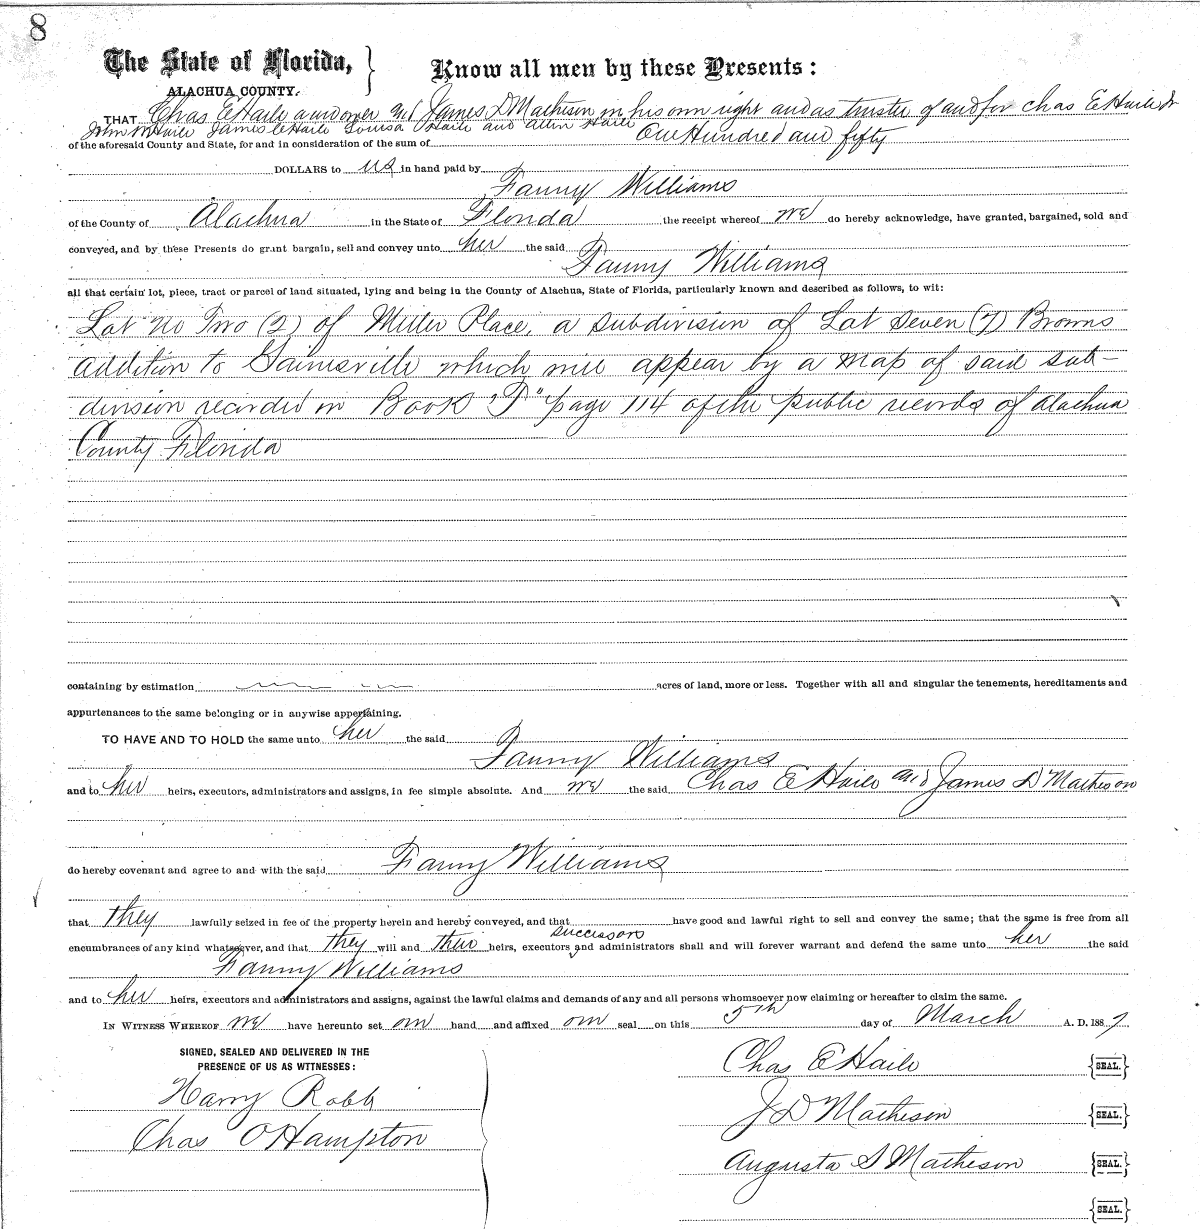 8
The State of Florida,
ALACHUA COUNTY.
Know all men by these Presents:
THAT Chas E Haile a widower and James D Matheson in his own right and as trustee of and for Chas E Haile Jr
John M Haile James C Haile Louisa Haile and Allen Haile
of the aforesaid County and State, for and in consideration of the sum of One Hundred and fifty
DOLLARS to us in hand paid by
Fanny Williams
of the County of Alachua in the State of Florida the receipt whereof we do hereby acknowledge, have granted, bargained, sold and
conveyed, and by these Presents do grant bargain, sell and convey unto her the said
Fanny Williams
all that certain lot, piece, tract or parcel of land situated, lying and being in the County of Alachua, State of Florida, particularly known and described as follows, to wit:
Lot No Two (2) of Miller Place, a subdivision of Lot Seven (7) Browns
addition to Gainesville which will appear by a map of said sub-
division recorded in Book "P" page 114 of the public records of Alachua
County Florida
containing by estimation acres of land, more or less. Together with all and singular the tenements, hereditaments and
appurtenances to the same belonging or in anywise appertaining.
TO HAVE AND TO HOLD the same unto her the said
Fanny Williams
and to her heirs, executors, administrators and assigns, in fee simple absolute. And we the said Chas E Haile and James D Matheson
do hereby covenant and agree to and with the said Fanny Williams
that they lawfully seized in fee of the property herein and hereby conveyed, and that have good and lawful right to sell and convey the same; that the same is free from all
successors
encumbrances of any kind whatsoever, and that they will and their heirs, executors and administrators shall and will forever warrant and defend the same unto her the said
Fanny Williams
and to her heirs, executors and administrators and assigns, against the lawful claims and demands of any and all persons whomsoever now claiming or hereafter to claim the same.
IN WITNESS WHEREOF we have hereunto set our hand and affixed our seal on this 5th day of March A. D. 1887
SIGNED, SEALED AND DELIVERED IN THE
PRESENCE OF US AS WITNESSES:
Harry Robb
Chas O Hampton
Chas E Haile {SEAL.}
J D Matheson {SEAL.}
Augusta S Matheson {SEAL.}
{SEAL.}